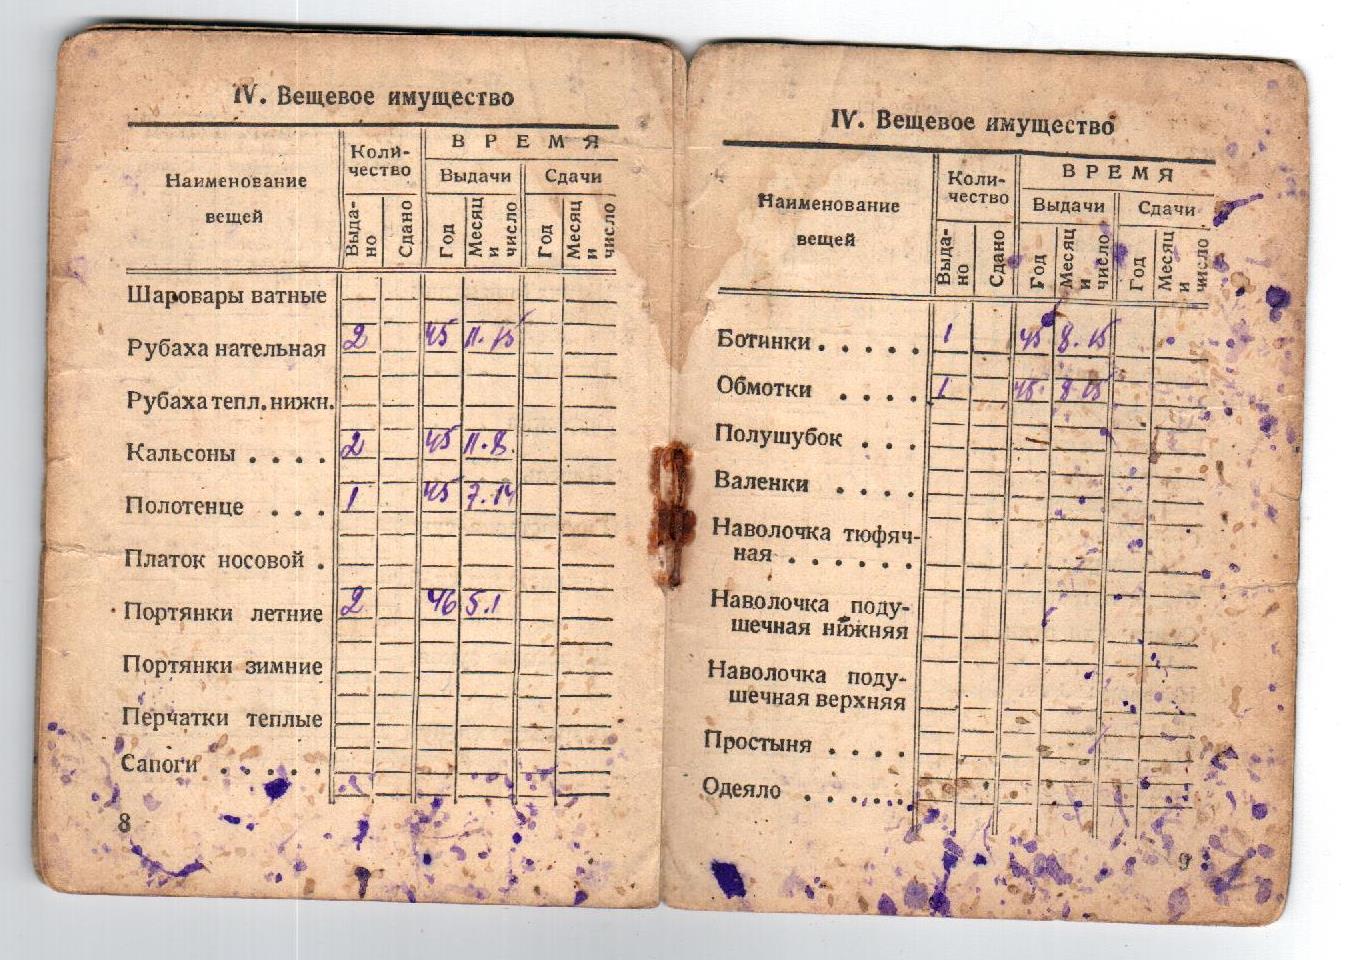 IV. Вещевое имущество
Наименование вещей
Коли-
чество
ВРЕМЯ
Выдачи
Сдачи
Выда-
но
Сдано
Год
Месяц
и
число
Год
Месяц
и
число
Шаровары ватные
Рубаха нательная 2 45 11.15
Рубаха тепл. нижн.
Кальсоны . . . . 2 45 11.8.
Полотенце . . . 1 45 7.14
Платок носовой .
Портянки летние 2 46 5.1
Портянки зимние
Перчатки теплые
Сапоги . . . . .
8
IV. Вещевое имущество
Наименование
вещей
Коли-
чество
ВРЕМЯ
Выдачи
Сдачи
Выда-
но
Сдано
Год
Месяц
и
число
Год
Месяц
и
число
Ботинки . . . . . 1 45 8.15
Обмотки . . . . 1 45. 8.15
Полушубок . . .
Валенки . . . .
Наволочка тюфяч-
ная . . . . . .
Наволочка поду-
шечная нижняя
Наволочка поду-
шечная верхняя
Простыня . . . .
Одеяло . . . . .
9